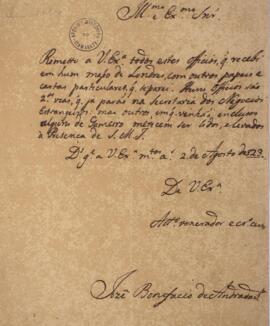 Illmo e Exmo Snr
Remetto a V. Exa todos estes officios, q. recebi
em hum maço de Londres, com outros papeis e
cartas particulares, q. separei. Huns Officios são
2.as vias, q. já parão na Secretaria dos Negocios
Estrangeiros: mas outros
alguns de Gameiro merecem ser lidos, e levados
á Presença de S. M. I.
Ds. ge. a V. Exa ms. as. 2 de Agosto de 1823.
De V. Exa
venerador e
José Bonifacio de Andrada